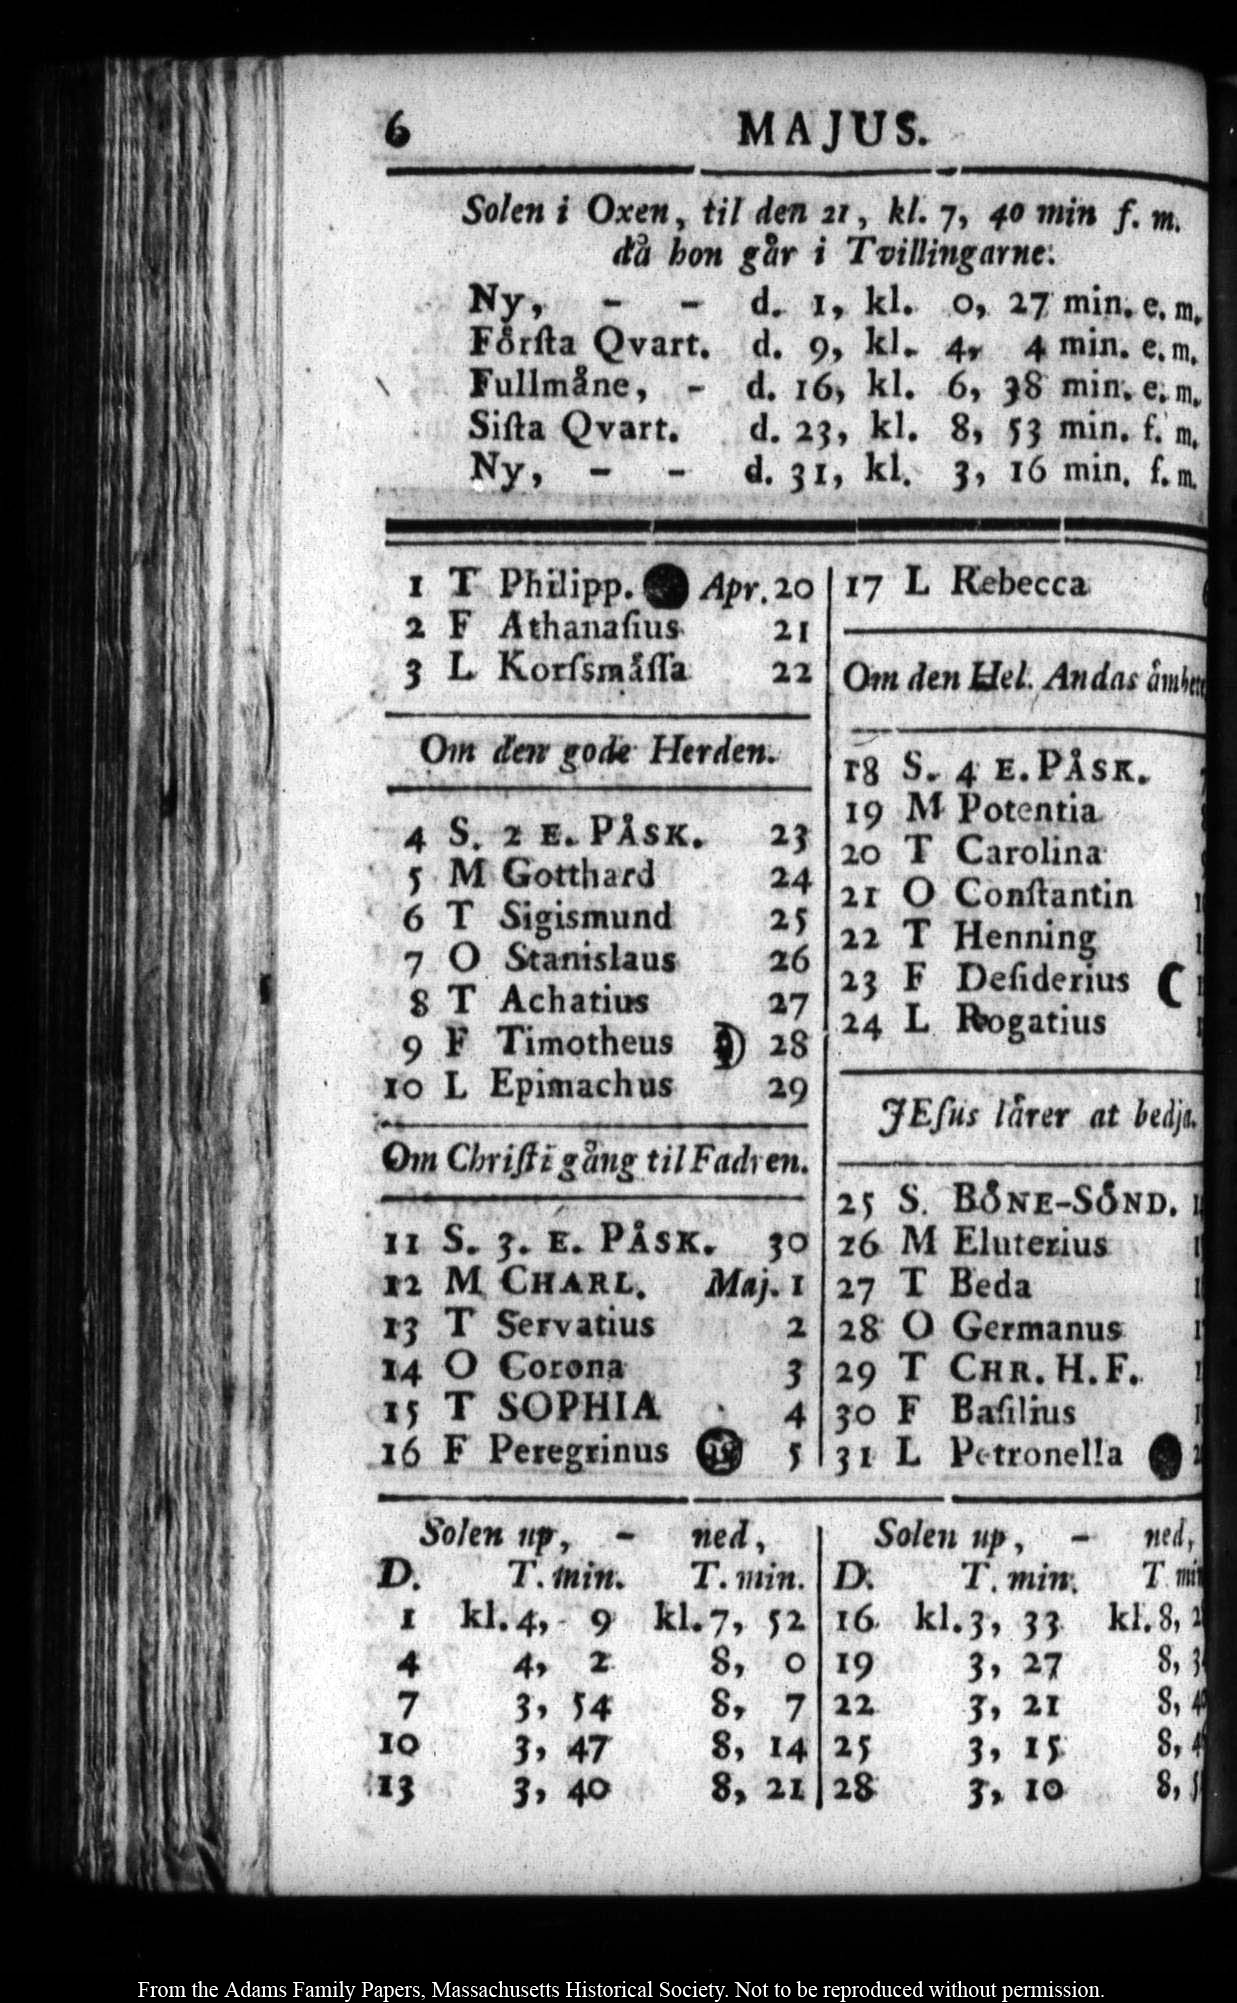 6 MAJUS.
Solen i Oxen, til den 21, kl. 7, 40 min f. m.
då hon går i Tvillingarne.
Ny, - - d. 1, kl. 0, 27 min. e. m.
Förſta Qvart. d. 9, kl. 4, 4 min. e. m.
Fullmåne, - d. 16, kl. 6, 38 min. e. m.
Siſta Qvart. d. 23, kl. 8, 53 min. f. m.
Ny, - - d. 31, kl. 3, 16 min. f. m.
1 T Philipp. Apr. 20
2 F Athanaſius 21
3 L Korſsmåſſa 22
Om den gode Herden.
4 S. 2 E. PÅSK. 23
5 M Gotthard 24
6 T Sigismund 25
7 O Stanislaus 26
8 T Achatius 27
9 F Timotheus 28
10 L Epimachus 29
Om Chriſti gång til Fadren.
11 S. 3. E. PÅSK. 30
12 M CHARL. Maj. 1
13 T Servatius 2
14 O Corona 3
15 T SOPHIA 4
16 F Peregrinus 5
17 L Rebecca
Om den Hel. Andas
18 S. 4 E. PÅSK.
19 M Potentia
20 T Carolina
21 O Conſtantin
22 T Henning
23 F Deſiderius
24 L Rogatius
JEſus lårer at bedja.
25 S. BÖNE-SÖND.
26 M Eluterius
27 T Beda
28 O Germanus
29 T CHR. H. F.
30 F Baſilius
31 L Petronella
Solen up, - ned,
D. T. min. T. min.
1 kl. 4, 9 kl. 7, 52
4 4, 2 8, 0
7 3, 54 8, 7
10 3, 47 8, 14
13 3, 40 8, 21
Solen up, - ned,
D. T. min. T
16 kl. 3, 33 kl. 8,
19 3, 27 8,
22 3, 21 8,
25 3, 15 8,
28 3, 10 8,
From the Adams Family Papers, Massachusetts Historical Society. Not to be reproduced without permission.